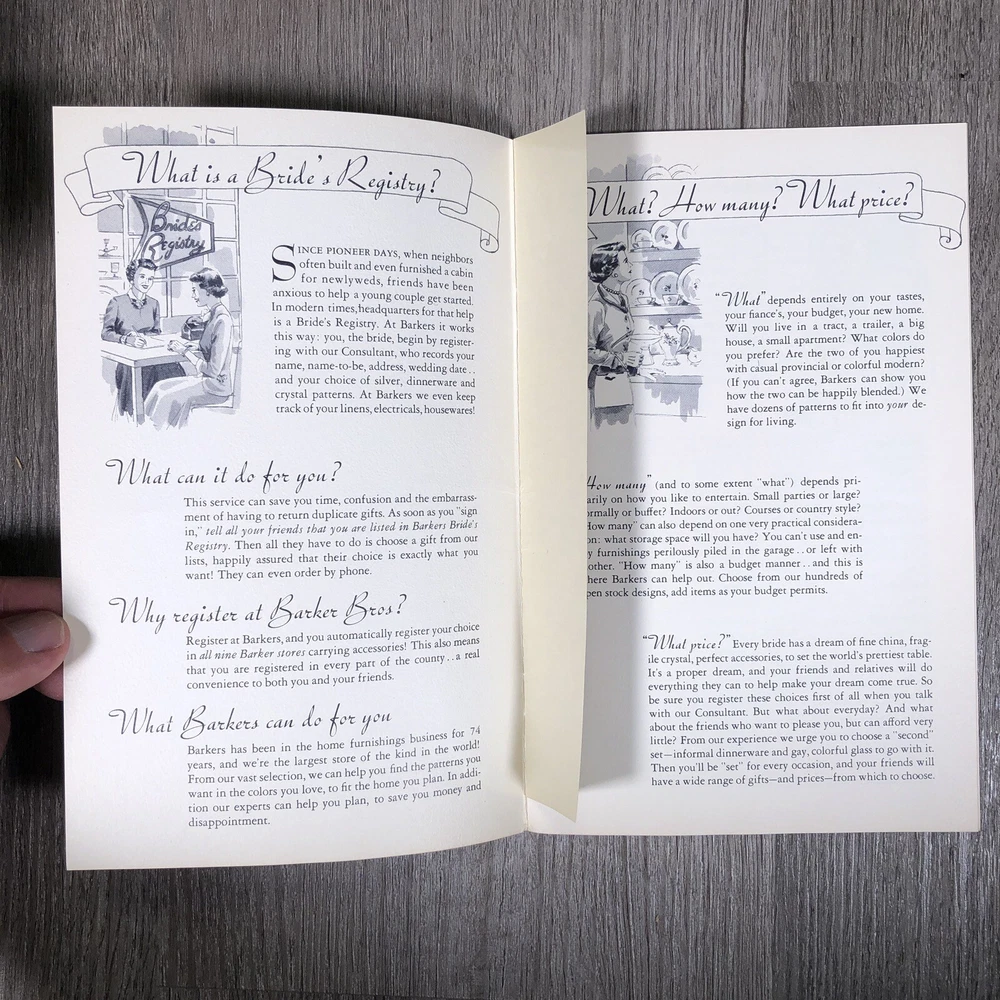 What is a Bride's Registry?
Bride's
Registry
SINCE PIONEER DAYS, when neighbors
often built and even furnished a cabin
for newlyweds, friends have been
anxious to help a young couple get started.
In modern times, headquarters for that help
is a Bride's Registry. At Barkers it works
this way: you, the bride, begin by register-
ing with our Consultant, who records your
name, name-to-be, address, wedding date..
and your choice of silver, dinnerware and
crystal patterns. At Barkers we even keep
track of your linens, electricals, housewares!
What can it do for you?
This service can save you time, confusion and the embarrass-
ment of having to return duplicate gifts. As soon as you "sign
in," tell all your friends that you are listed in Barkers Bride's
Registry. Then all they have to do is choose a gift from our
lists, happily assured that their choice is exactly what you
want! They can even order by phone.
Why register at Barker Bros?
Register at Barkers, and you automatically register your choice
in all nine Barker stores carrying accessories! This also means
that you are registered in every part of the county..a real
convenience to both you and your friends.
What Barkers can do for you
Barkers has been in the home furnishings business for 74
years, and we're the largest store of the kind in the world!
From our vast selection, we can help you find the patterns you
want in the colors you love, to fit the home you plan. In addi-
tion our experts can help you plan, to save you money and
disappointment.
What? How many? What price?
"What" depends entirely on your tastes,
your fiance's, your budget, your new home.
Will you live in a tract, a trailer, a big
house, a small apartment? What colors do
you prefer? Are the two of you happiest
with casual provincial or colorful modern?
(If you can't agree, Barkers can show you
how the two can be happily blended.) We
have dozens of patterns to fit into your de-
sign for living.
How many" (and to some extent "what") depends pri-
arily on how you like to entertain. Small parties or large?
ormally or buffet? Indoors or out? Courses or country style?
How many" can also depend on one very practical considera-
on: what storage space will you have? You can't use and en-
y furnishings perilously piled in the garage..or left with
other. "How many" is also a budget manner..and this is
here Barkers can help out. Choose from our hundreds of
pen stock designs, add items as your budget permits.
"What price?" Every bride has a dream of fine china, frag-
ile crystal, perfect accessories, to set the world's prettiest table.
It's a proper dream, and your friends and relatives will do
everything they can to help make your dream come true. So
be sure you register these choices first of all when you talk
with our Consultant. But what about everyday? And what
about the friends who want to please you, but can afford very
little? From our experience we urge you to choose a "second"
set—informal dinnerware and gay, colorful glass to go with it.
Then you'll be "set" for every occasion, and your friends will
have a wide range of gifts—and prices—from which to choose.